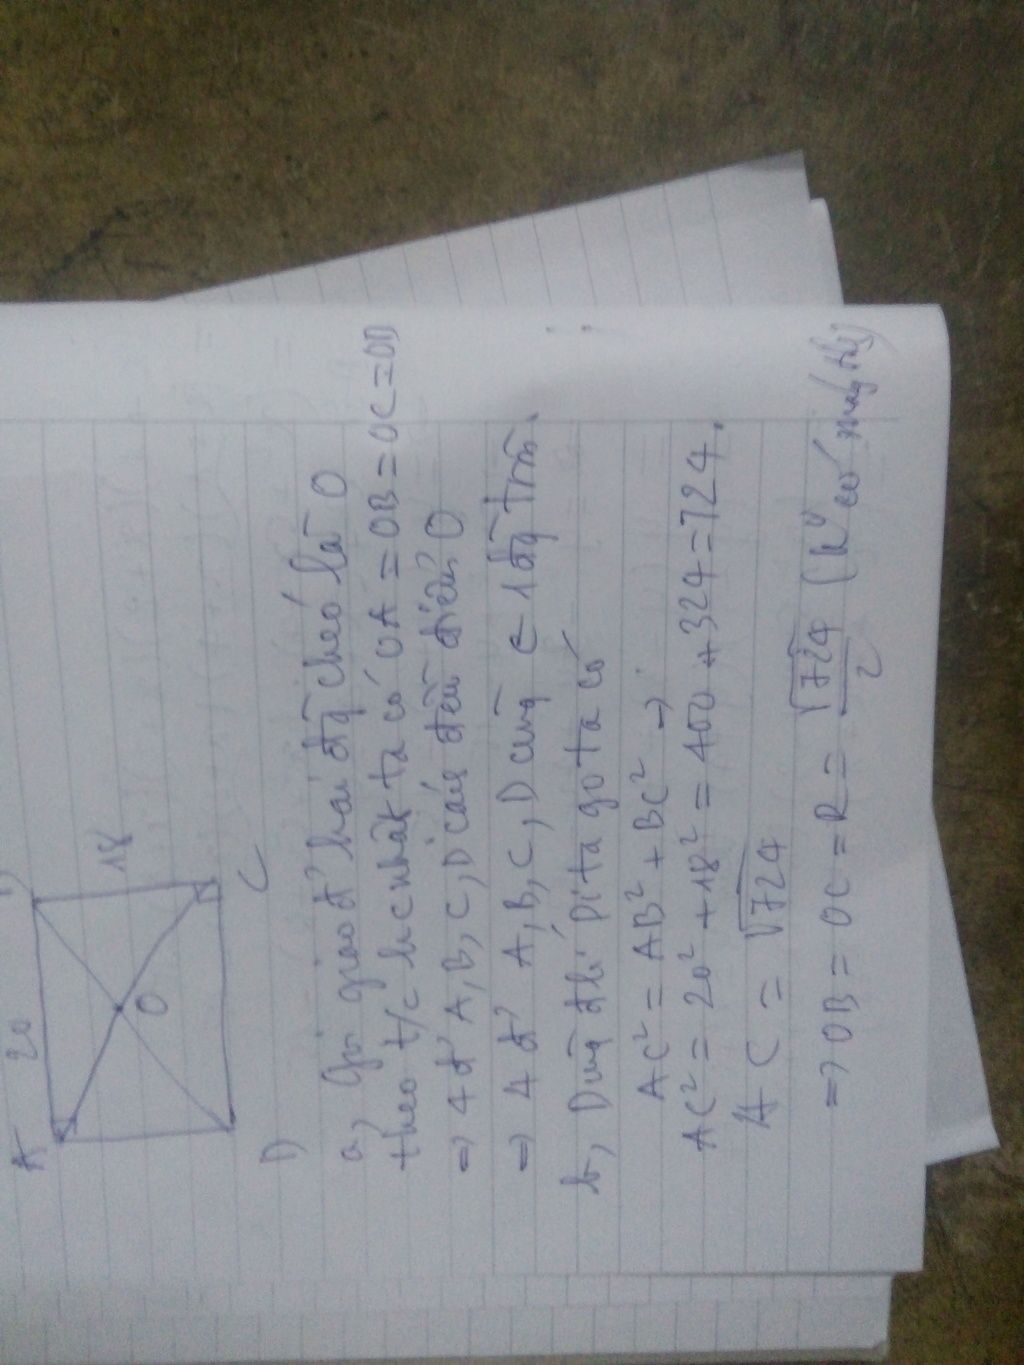 A 20
18
O
D C
a, Gọi giao đ' hai đg chéo là O
theo t/c hcnhật ta có OA = OB = OC = OD
=> 4 đ' A, B, C, D cách đều điểm O
=> 4 đ' A, B, C, D cùng ∈ 1 đg tròn.
b, Dùng đlí pitago ta có
AC² = AB² + BC² →
AC² = 20² + 18² = 400 + 324 = 724.
AC = √724
=> OB = OC = R = √724 / 2 (k° có máy tính)